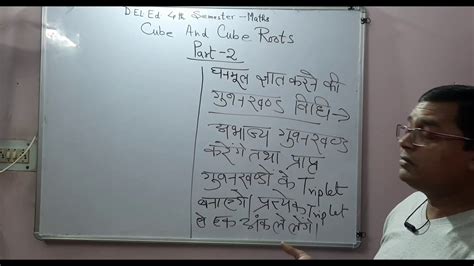 DEL.Ed 4th Semester - Maths
Cube And Cube Roots
Part-2
घनमूल ज्ञात करने की
गुणनखण्ड विधि →
अभाज्य गुणनखण्ड
करेंगे तथा प्राप्त
गुणनखण्डो के Triplet
बनाएंगे। प्रत्येक Triplet
से एक अंक ले लेंगे।